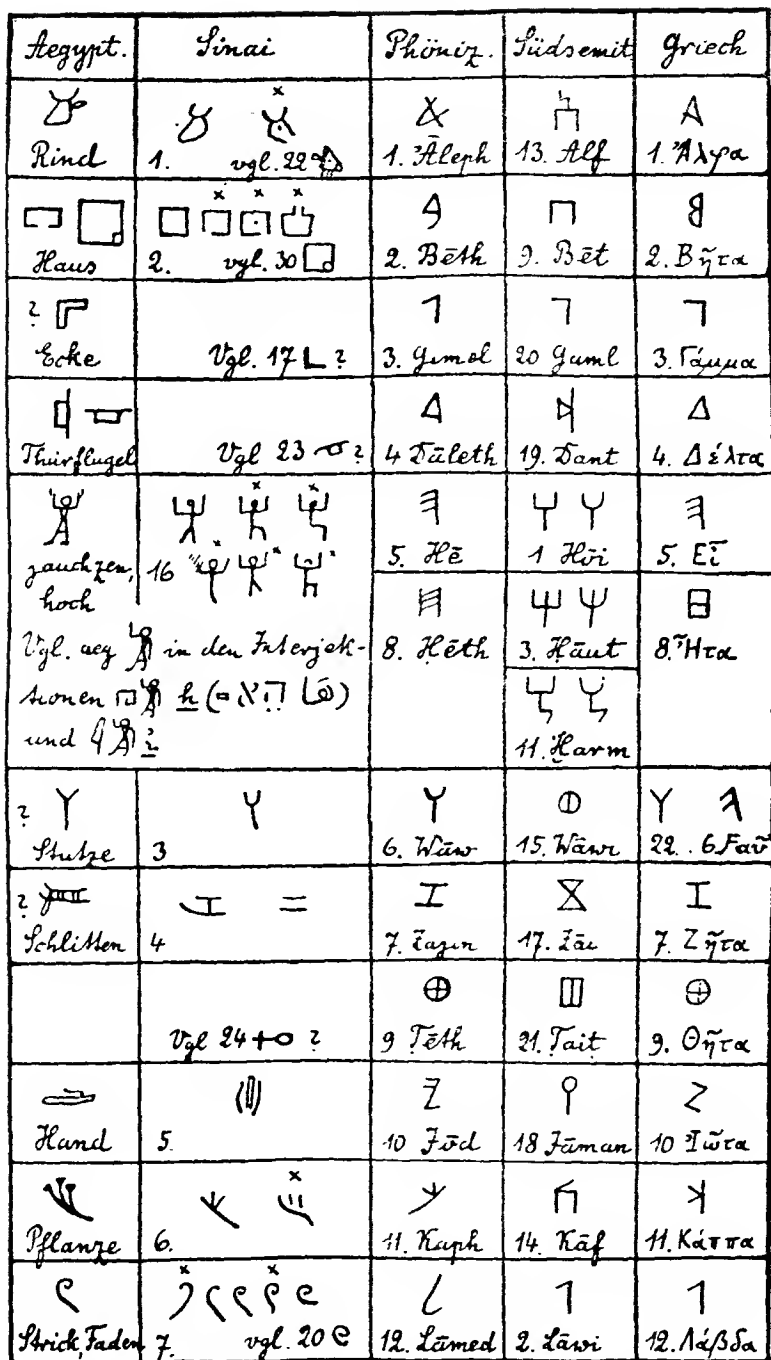 Aegypt. Sinai Phöniz. Südsemit. Griech
Rind 1. vgl. 22 1. Āleph 13. Alf 1. Ἄλφα
Haus 2. vgl. 30 2. Bēth 9. Bēt 2. Βῆτα
? Ecke Vgl. 17 ? 3. Gimel 20 Gaml 3. Γάμμα
Thürflügel Vgl 23 ? 4 Dāleth 19. Dant 4. Δέλτα
jauchzen, 16 5. Hē 1 Hōi 5. Εἶ
hoch
Vgl. aeg in den Interjek-
tionen h
und
8. Ḥēth 3. Ḥāut 8. Ἥτα
11. Ḫarm
? Stütze 3 6. Wāw 15. Wāwi 22. . 6. Faῦ
? Schlitten 4 7. Zajin 17. Zāi 7. Ζῆτα
Vgl 24 ? 9 Ṭēth 21. Ṭait 9. Θῆτα
Hand 5. 10 Jōd 18 Jāman 10 Ἰῶτα
Pflanze 6. 11. Kaph 14. Kāf 11. Κάππα
Strick, Faden 7. vgl. 20 12. Lāmed 2. Lāwi 12. Λάβδα